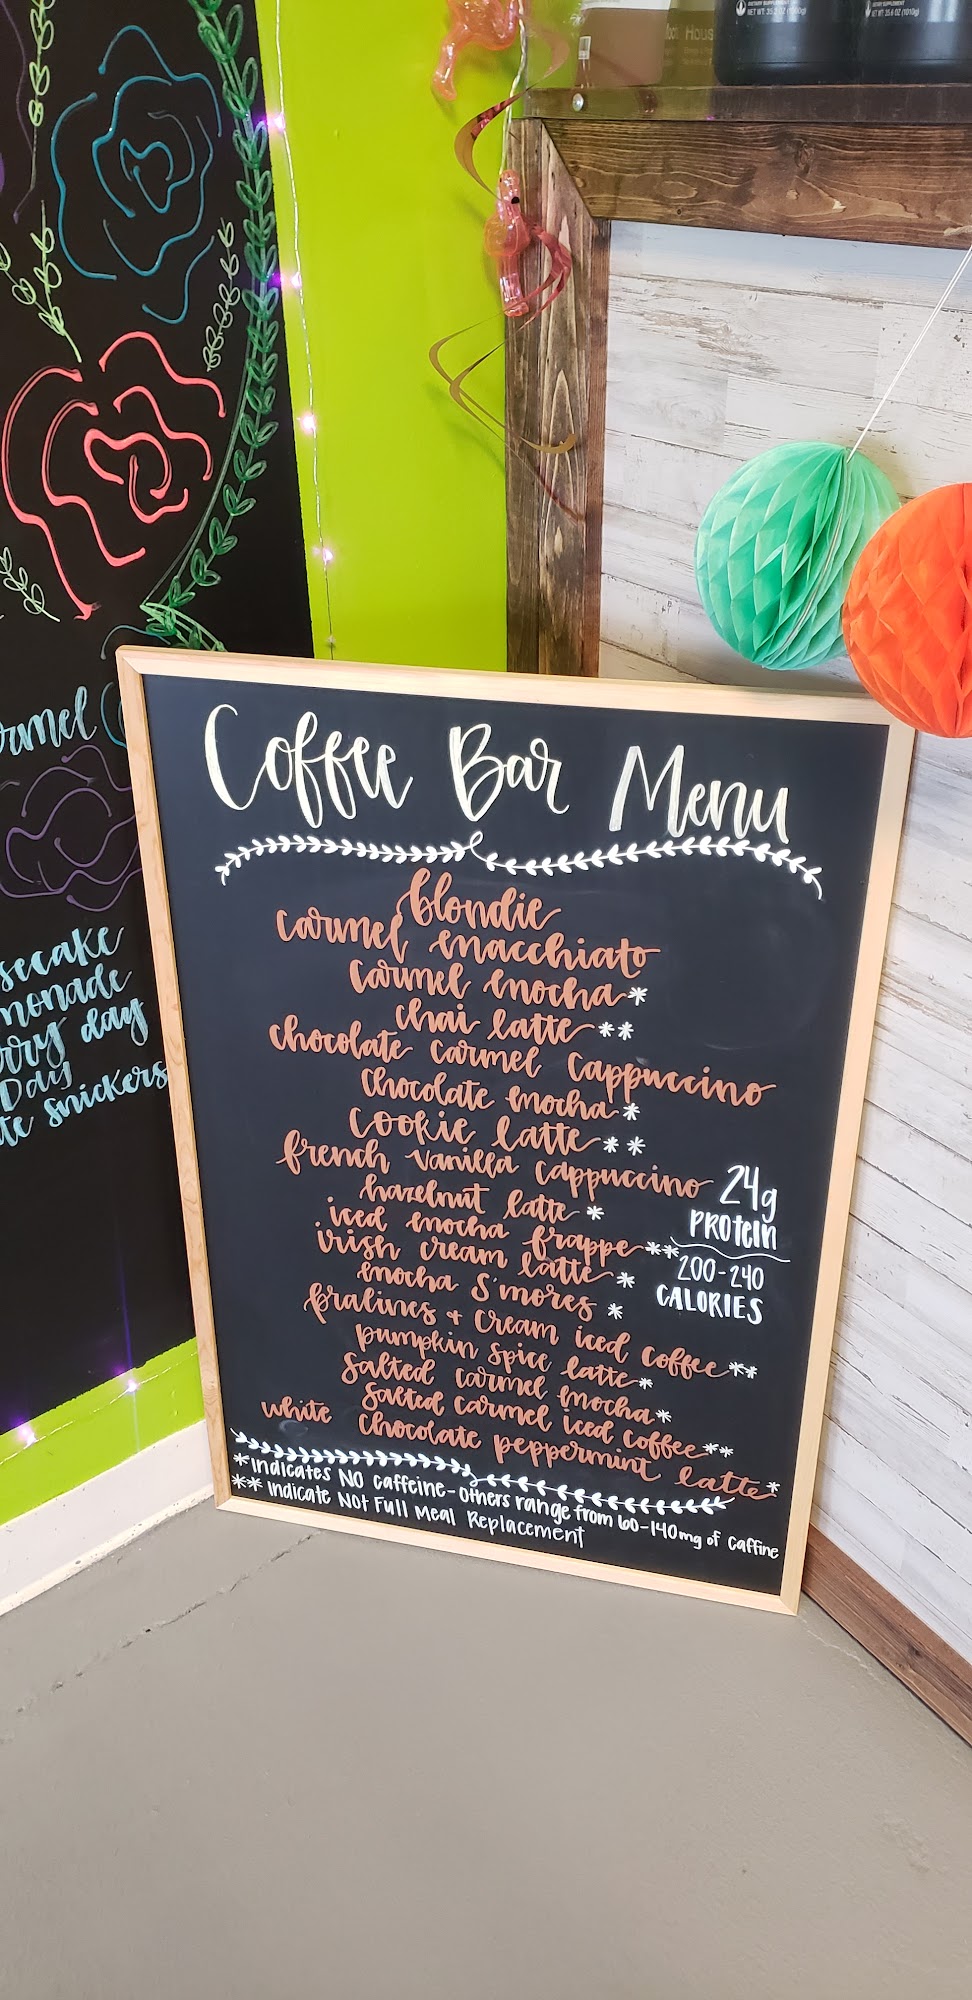 DIETARY SUPPLEMENT
Hous
armel
secake
monade
rry day
Day
te snickers
Coffee Bar Menu
blondie
carmel macchiato
carmel mocha *
chai latte **
chocolate carmel cappuccino
chocolate mocha *
cookie latte **
french vanilla cappuccino
hazelnut latte *
iced mocha frappe **
irish cream latte *
mocha S'mores *
pralines + cream iced coffee **
pumpkin spice latte *
salted carmel mocha *
salted carmel iced coffee **
white chocolate peppermint latte *
24g
PROtein
200-240
CALORIES
*Indicates NO caffeine-others range from 60-140mg of caffine
** Indicate Not Full Meal Replacement